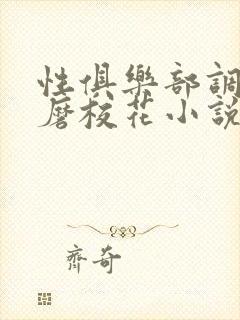 性俱樂部調
磨校花小說
齊奇